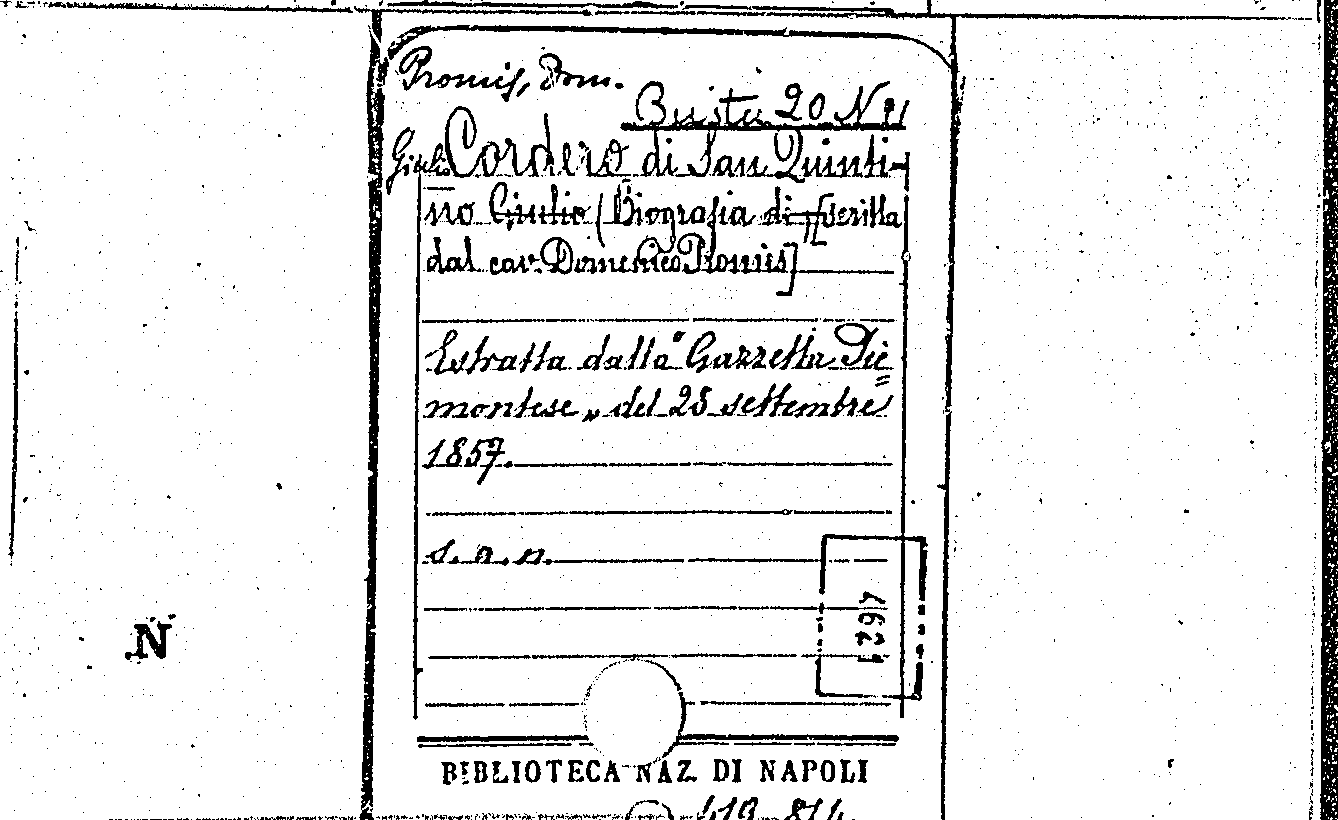 Promis, Dom.
Busta 20 N 21
Giulio Cordero di San Quinti-
no Giulio (Biografia di scritta
dal cav. Domenico Promis]
Estratta dalla "Gazzetta Pie
montese" del 25 settembre
1857.
s. a. n.
N
BIBLIOTECA NAZ. DI NAPOLI